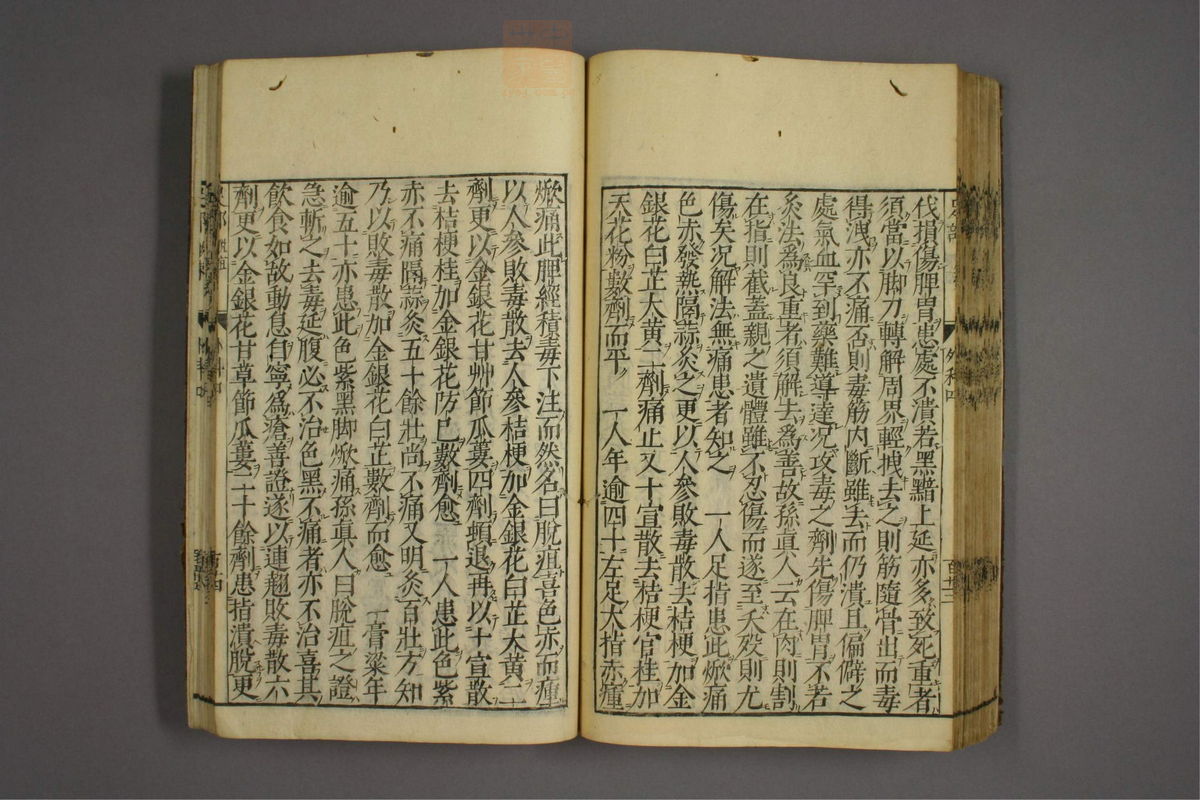 伐損傷脾胃患處不潰若黑黯上延亦多致死重者
須當以脚刀轉解周界輕拽去之則筋隨骨出而毒
得洩亦不痛否則毒筋内斷雖去而仍潰且偏僻之
處氣血罕到藥難導達况攻毒之劑先傷脾胃不若
灸法爲良重者須解去爲善故孫眞人云在肉則割
在指則截蓋親之遺體雖不忍傷而遂至夭殁則尤
傷矣况解法無痛患者知之 一人足指患此焮痛
色赤發熱隔蒜灸之更以人參敗毒散去桔梗加金
銀花白芷大黄二劑痛止又十宣散去桔梗官桂加
天花粉數劑而平 一人年逾四十左足大指赤瘇
焮痛此脾經積毒下注而然名曰脫疽喜色赤而瘇
以人參敗毒散去人參桔梗加金銀花白芷大黄二
劑更以金銀花甘艸節瓜蔞四劑頓退再以十宣散
去桔梗桂加金銀花防已數劑愈 一人患此色紫
赤不痛隔蒜灸五十餘壯尚不痛又明灸百壯方知
乃以敗毒散加金銀花白芷數劑而愈 一膏粱年
逾五十亦患此色紫黑脚焮痛孫眞人曰脫疽之證
急斬之去毒延腹必不治色黑不痛者亦不治喜其
飲食如故動息自寧爲瘡善證遂以連翹敗毒散六
劑更以金銀花甘草節瓜蔞二十餘劑患指潰脫更